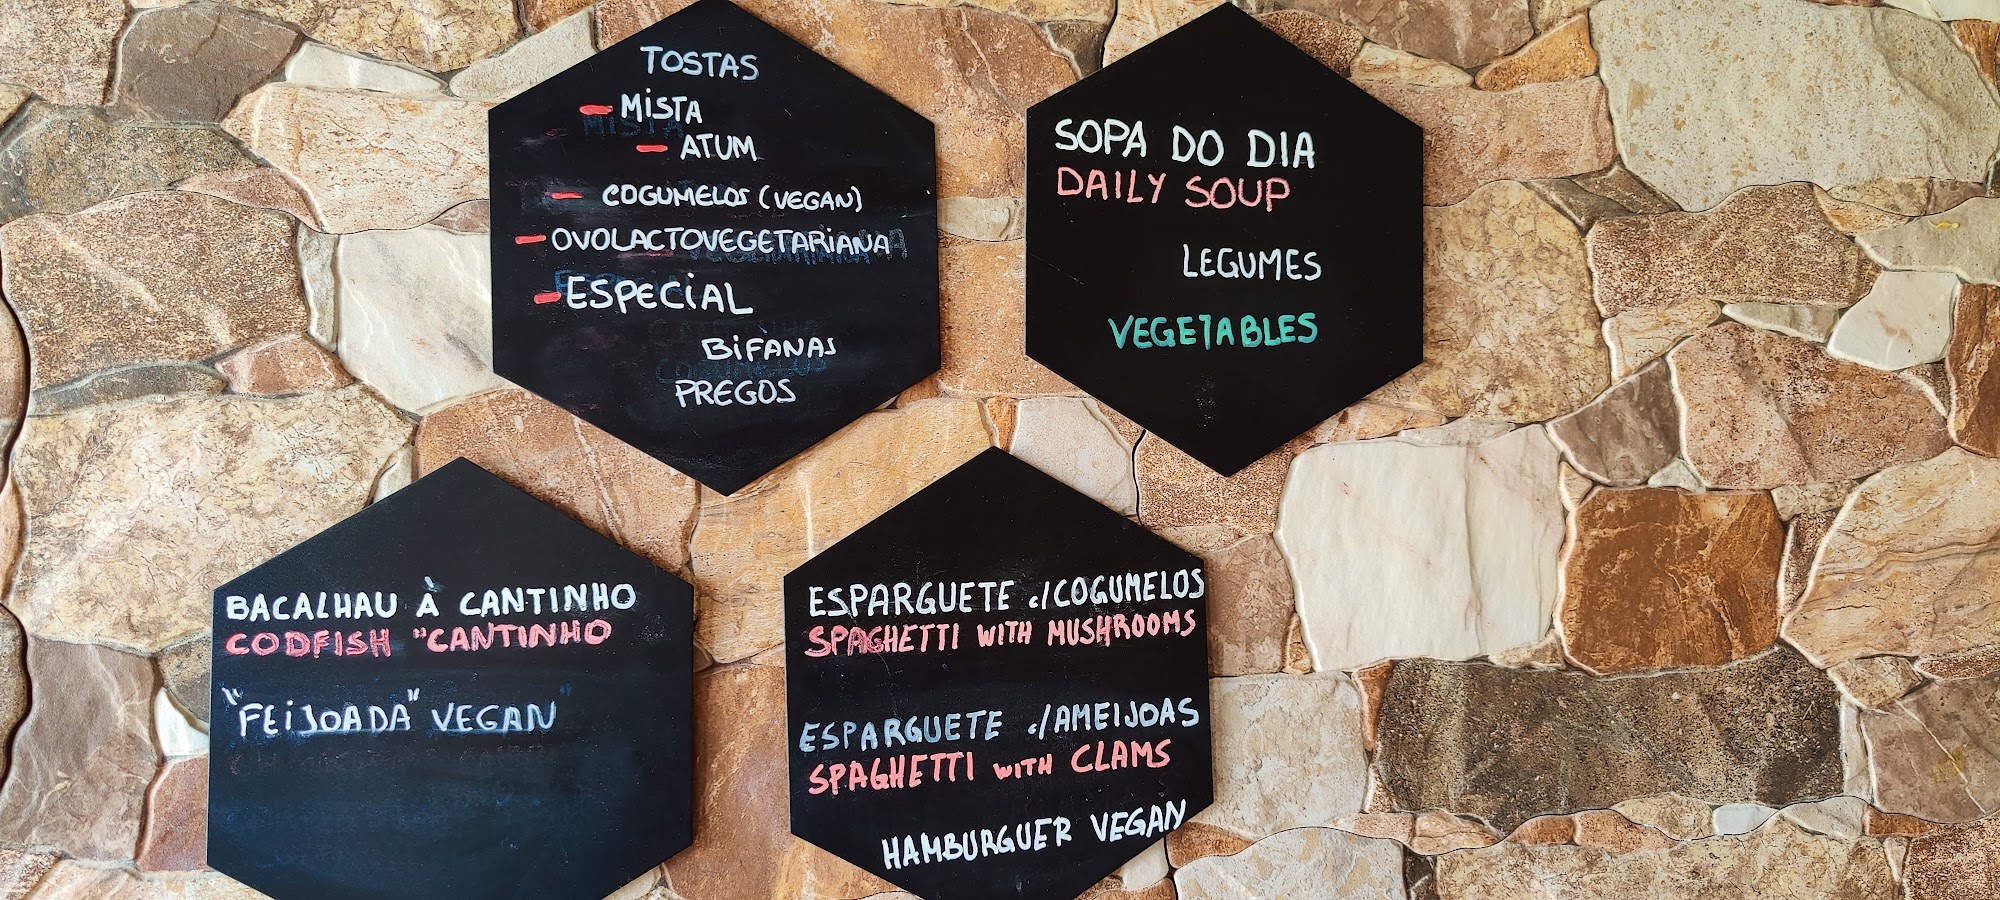 TOSTAS
- MISTA
- ATUM
- COGUMELOS (VEGAN)
- OVOLACTOVEGETARIANA
- ESPECIAL
BIFANAS
PREGOS
SOPA DO DIA
DAILY SOUP
LEGUMES
VEGETABLES
BACALHAU À CANTINHO
CODFISH "CANTINHO
"FEIJOADA" VEGAN"
ESPARGUETE c/COGUMELOS
SPAGHETTI WITH MUSHROOMS
ESPARGUETE c/AMEIJOAS
SPAGHETTI WITH CLAMS
HAMBURGUER VEGAN